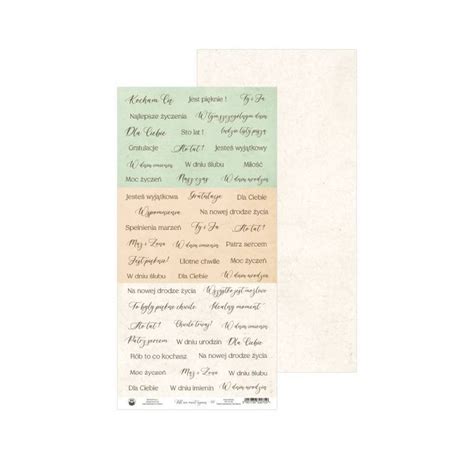 Kocham Cię Jest pięknie! Ty i Ja
Najlepsze życzenia W tym szczególnym dniu
Dla Ciebie Sto lat! Ludzie listy piszą
Gratulacje Sto lat! Jesteś wyjątkowy
W dniu imienin W dniu ślubu Miłość
Moc życzeń Nasz czas W dniu urodzin
Jesteś wyjątkowa Gratulacje Dla Ciebie
Wspomnienia Na nowej drodze życia
Spełnienia marzeń Ty i Ja W dniu imienin
Mąż i Żona W dniu imienin Patrz sercem
Jest pięknie! Ulotne chwile Moc życzeń
W dniu ślubu Dla Ciebie W dniu urodzin
Na nowej drodze życia Wszystko jest możliwe
To były piękne chwile Idealny moment
Sto lat! Chwilo trwaj!
Patrz sercem W dniu urodzin Dla Ciebie
Rób to co kochasz Sto lat! W dniu ślubu
Moc życzeń Mąż i Żona W dniu ślubu
Dla Ciebie W dniu imienin W dniu urodzin